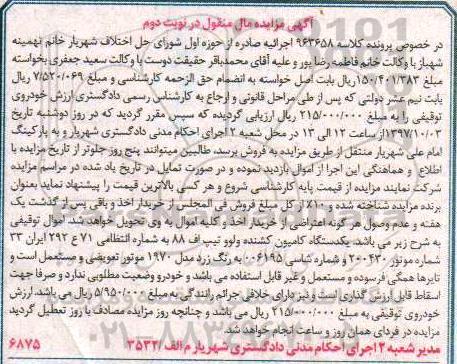 آگهی مزایده مال منقول در نوبت دوم
در خصوص پرونده کلاسه ۹۶۳۶۵۸ اجرائیه صادره از حوزه اول شورای حل اختلاف شهریار خانم تهمینه
شهباز با وکالت خانم فاطمه رضا پور و علیه آقای محمدباقر حقیقت دوست با وکالت سعید جعفری بخواسته
مبلغ ۱۵۰/۴۰۱/۳۸۳ ریال بابت اصل خواسته به انضمام حق الزحمه کارشناسی و مبلغ ۷/۵۲۰/۰۶۹ ریال
بابت نیم عشر دولتی که پس از طی مراحل قانونی و ارجاع به کارشناس رسمی دادگستری ارزش خودروی
توقیفی را به مبلغ ۲۱۵/۰۰۰/۰۰۰ ریال ارزیابی گردیده که سپس مقرر گردید که در روز دوشنبه تاریخ
۱۳۹۷/۱۰/۰۳ از ساعت ۱۲ الی ۱۳ در محل شعبه ۲ اجرای احکام مدنی دادگستری شهریار و به پارکینگ
امام علی شهریار منتقل از طریق مزایده به فروش برسد، طالبین میتوانند پنج روز جلوتر از تاریخ مزایده با
اطلاع و هماهنگی این اجرا از اموال بازدید نموده و در صورت تمایل در تاریخ یاد شده در مراسم مزایده
شرکت نمایند مزایده از قیمت پایه کارشناسی شروع و هر کسی بالاترین قیمت را پیشنهاد نماید بعنوان
برنده مزایده شناخته شده و ۱۰٪ از کل مبلغ فروش فی المجلس از خریدار اخذ و باقی پس از گذشت یک
هفته و عدم وصول هر گونه اعتراضی از خریدار اخذ و کلیه اموال به وی تحویل خواهد شد. اموال توقیفی
به شرح زیر می باشد. یکدستگاه کامیون کشنده ولوو تیپ اف ۸۸ به شماره انتظامی ۷۱ ع ۲۹۲ ایران ۳۳
شماره موتور ۲۰۰۴۳۰ و شماره شاسی ۰۰۶۱۹۵ به رنگ زرد مدل ۱۹۷۰ موتور تعویضی و مستعمل است و
تایرها همگی فرسوده و مستعمل و غیر قابل استفاده می باشد و خودرو وضعیت مطلوبی ندارد و صرفا جهت
اسقاط قابل ارزش گذاری است و نیز دارای خلافی جرائم رانندگی به مبلغ ۵/۹۵۰/۰۰۰ ریال می باشد. ارزش
خودروی توقیفی به مبلغ ۲۱۵/۰۰۰/۰۰۰ ریال می باشد و چنانچه روز مزایده مصادف با روز تعطیل گردید
مزایده در فردای همان روز و ساعت انجام خواهد شد.
مدیر شعبه ۲ اجرای احکام مدنی دادگستری شهریار م الف /۳۵۳۲ ۶۸۷۵